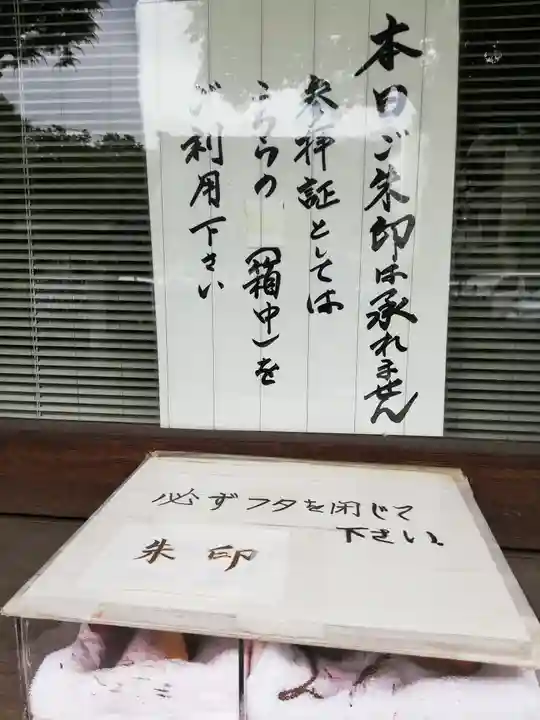 本日ご朱印は承れません
参拝証としては
こちらの（箱中）を
ご利用下さい
必ずフタを閉じて
下さい。
朱印